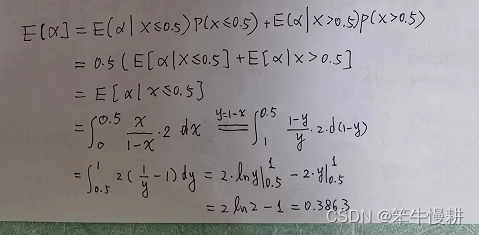 E[α] = E(α|X≤0.5)P(X≤0.5)+E(α|X>0.5)P(X>0.5)
= 0.5(E[α|X≤0.5]+E[α|X>0.5]
= E[α|X≤0.5]
= ∫₀^0.5 x/(1-x)·2 dx =(y=1-x)= ∫₁^0.5 (1-y)/y·2·d(1-y)
= ∫_0.5^1 2(1/y -1)dy = 2·lny|_0.5^1 - 2·y|_0.5^1
= 2ln2-1=0.3863
CSDN @笨牛慢耕